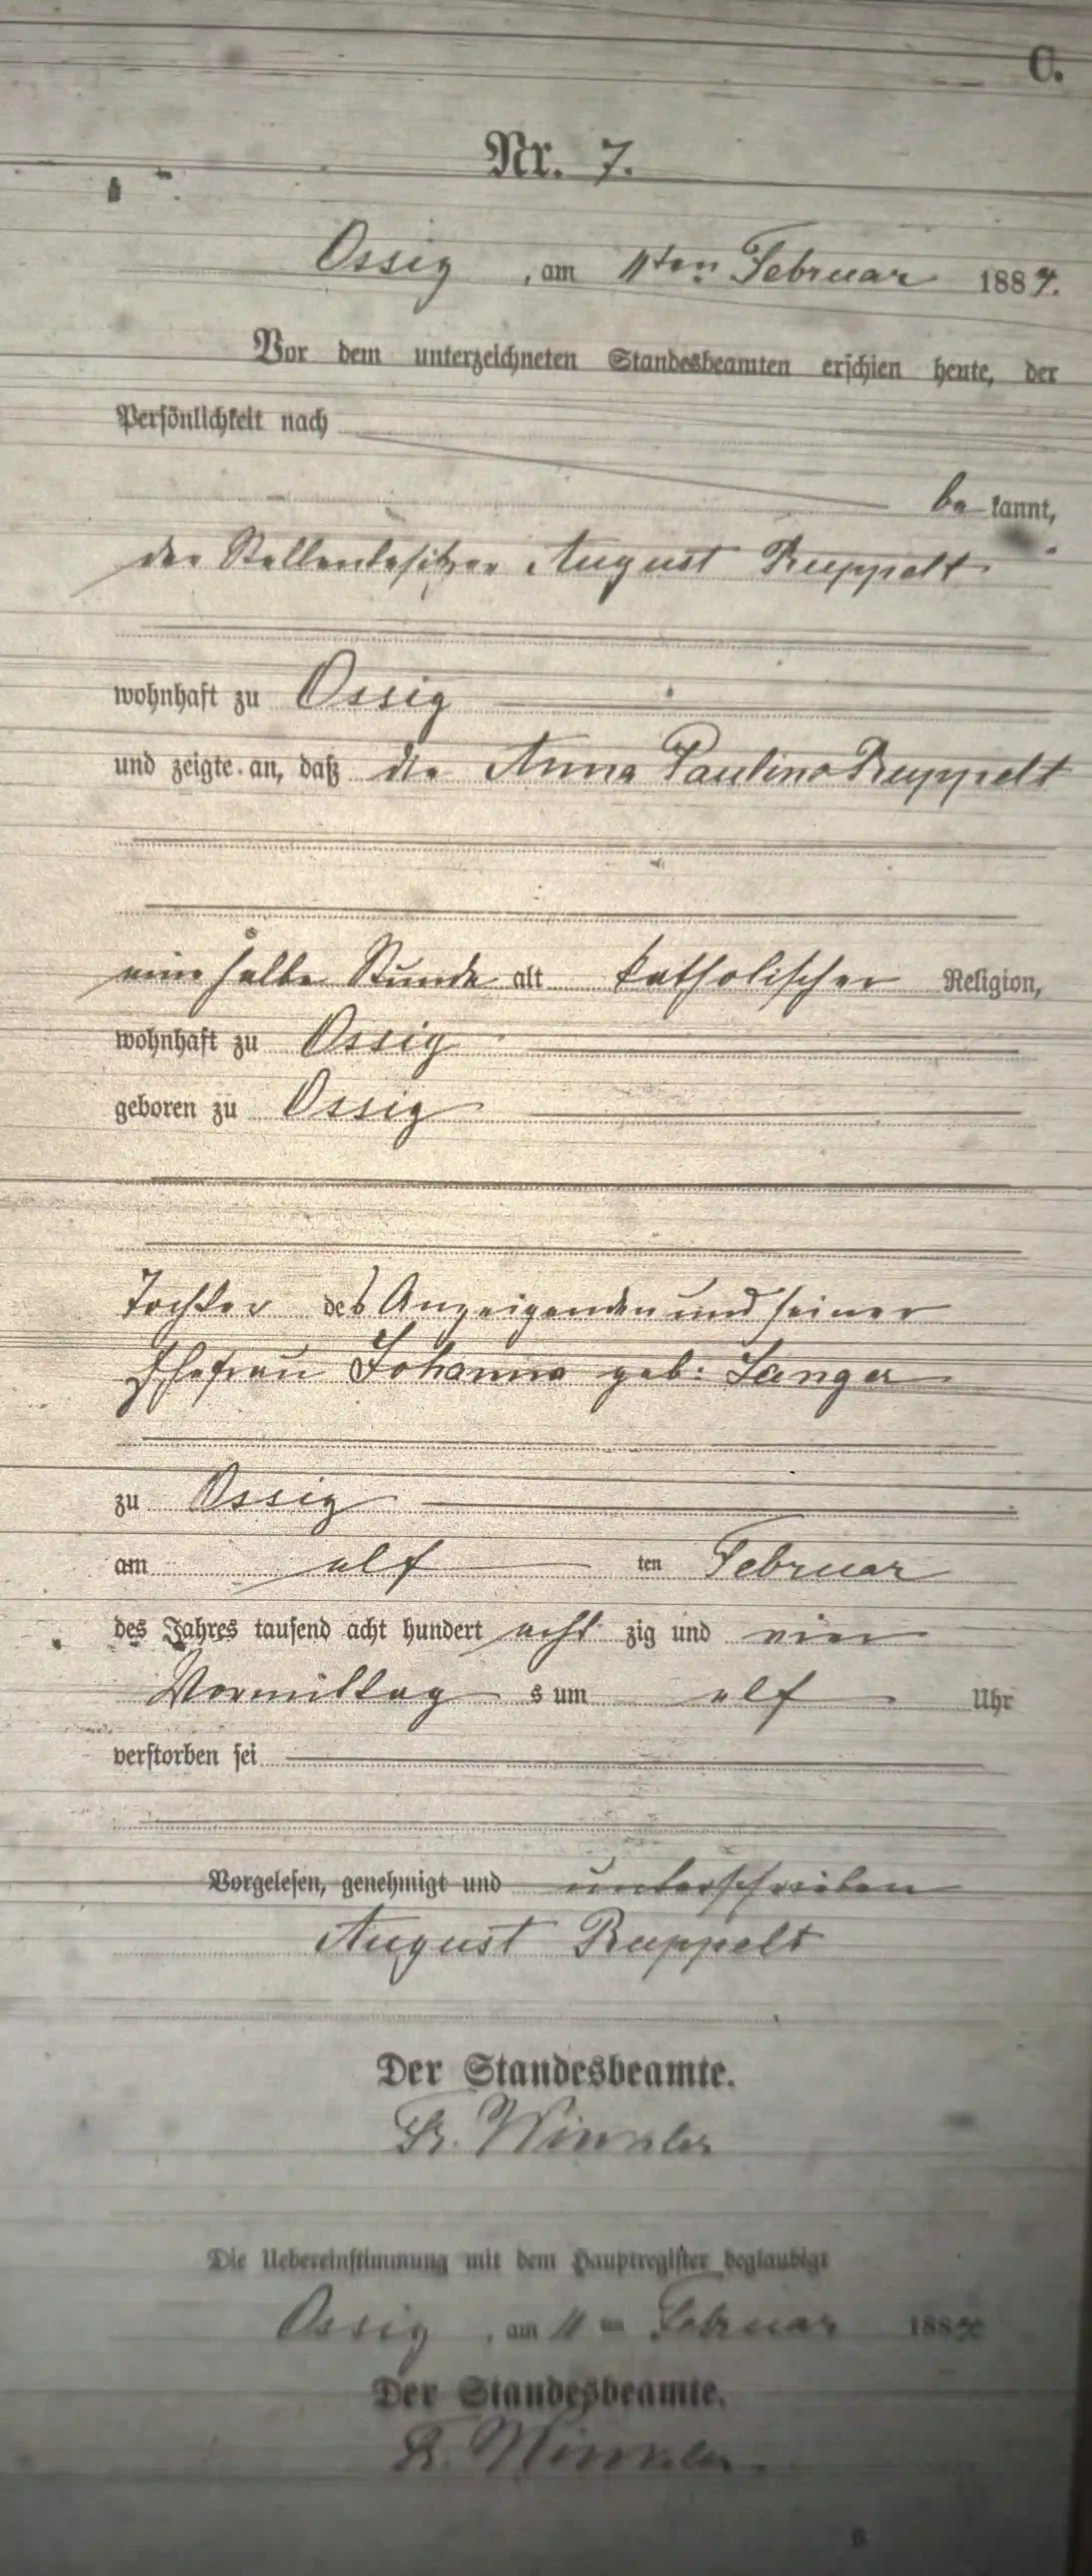 C.
Nr. 7.
Ossig, am 11ten Februar 1884.
Vor dem unterzeichneten Standesbeamten erschien heute, der
Persönlichkeit nach
bekannt,
der Stellenbesitzer August Ruppelt
wohnhaft zu Ossig
und zeigte an, daß die Anna Pauline Ruppelt
eine halbe Stunde alt katholischer Religion,
wohnhaft zu Ossig
geboren zu Ossig
Tochter des Anzeigenden und seiner
Ehefrau Johanna geb: Langer
zu Ossig
am elf ten Februar
des Jahres tausend acht hundert acht zig und vier
Vormittag s um elf Uhr
verstorben sei
Vorgelesen, genehmigt und unterschrieben
August Ruppelt
Der Standesbeamte.
Fr. Winkler
Die Uebereinstimmung mit dem Hauptregister beglaubigt
Ossig, am 11ten Februar 1884
Der Standesbeamte.
Fr. Winkler